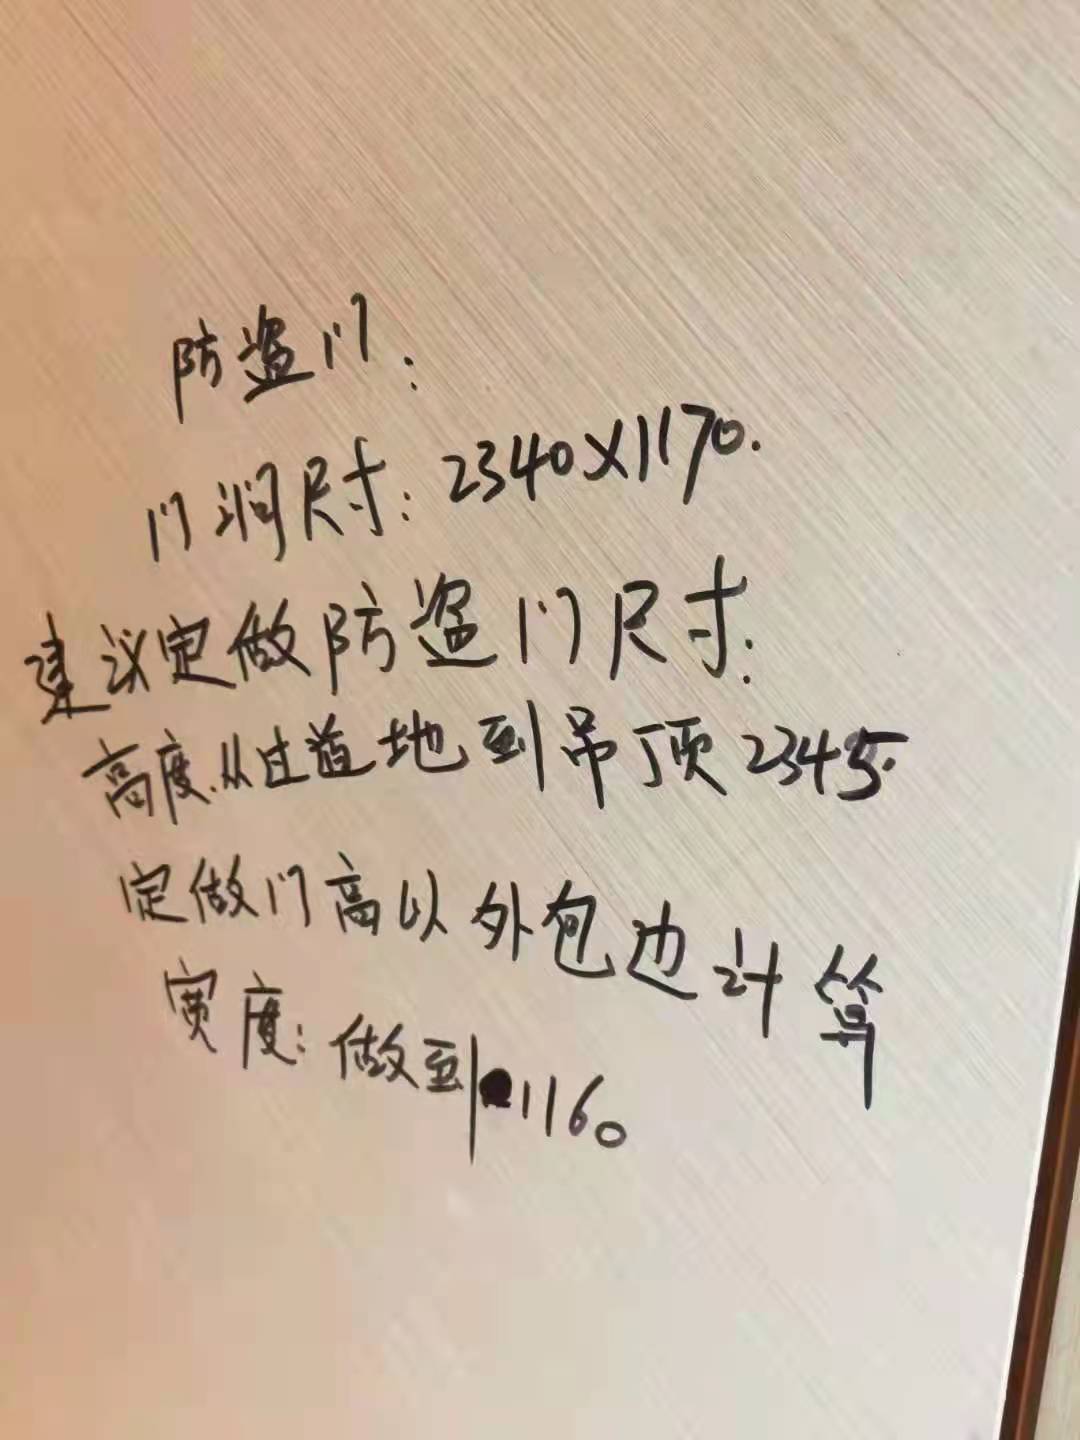 防盗门:
门洞尺寸:2340×1170.
建议定做防盗门尺寸:
高度.从过道地到吊顶2345.
定做门高以外包边计算
宽度:做到1160